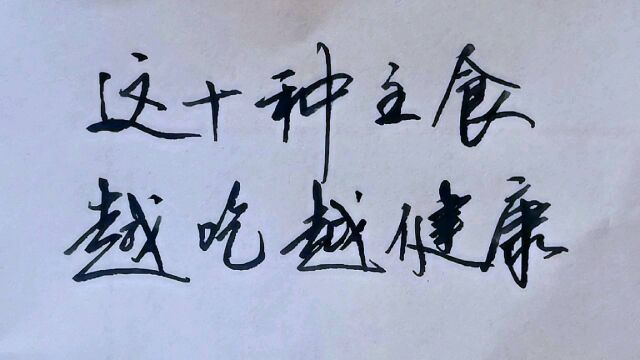 这十种主食
越吃越健康